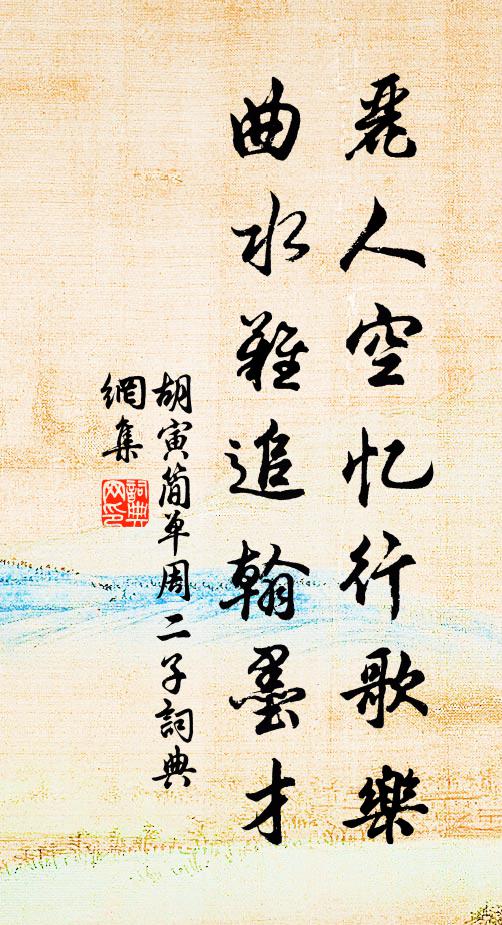 麗人空忆行歌樂
曲水難追翰墨才
胡寅簡单周二子詞典
網集
詞典
网印